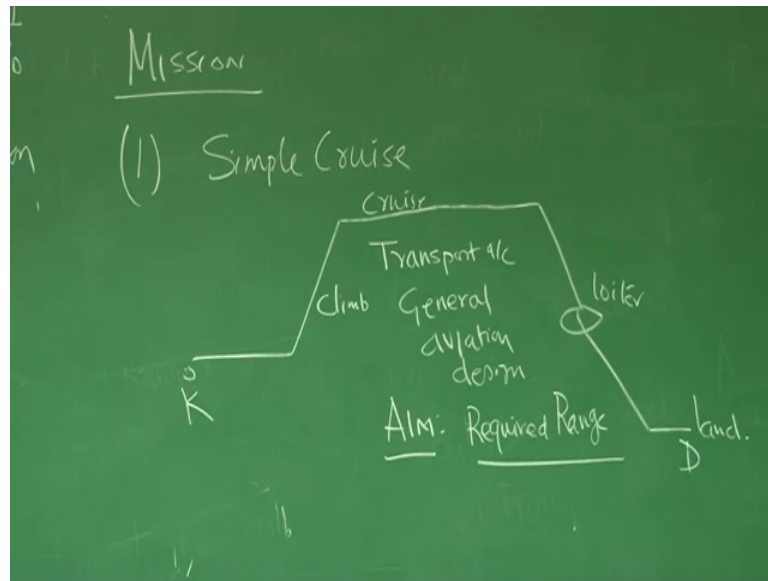 Mission
(1) Simple Cruise
Cruise
Transport a/c
Climb General
aviation
design.
loiter
AIM: Required Range
land.
K
D